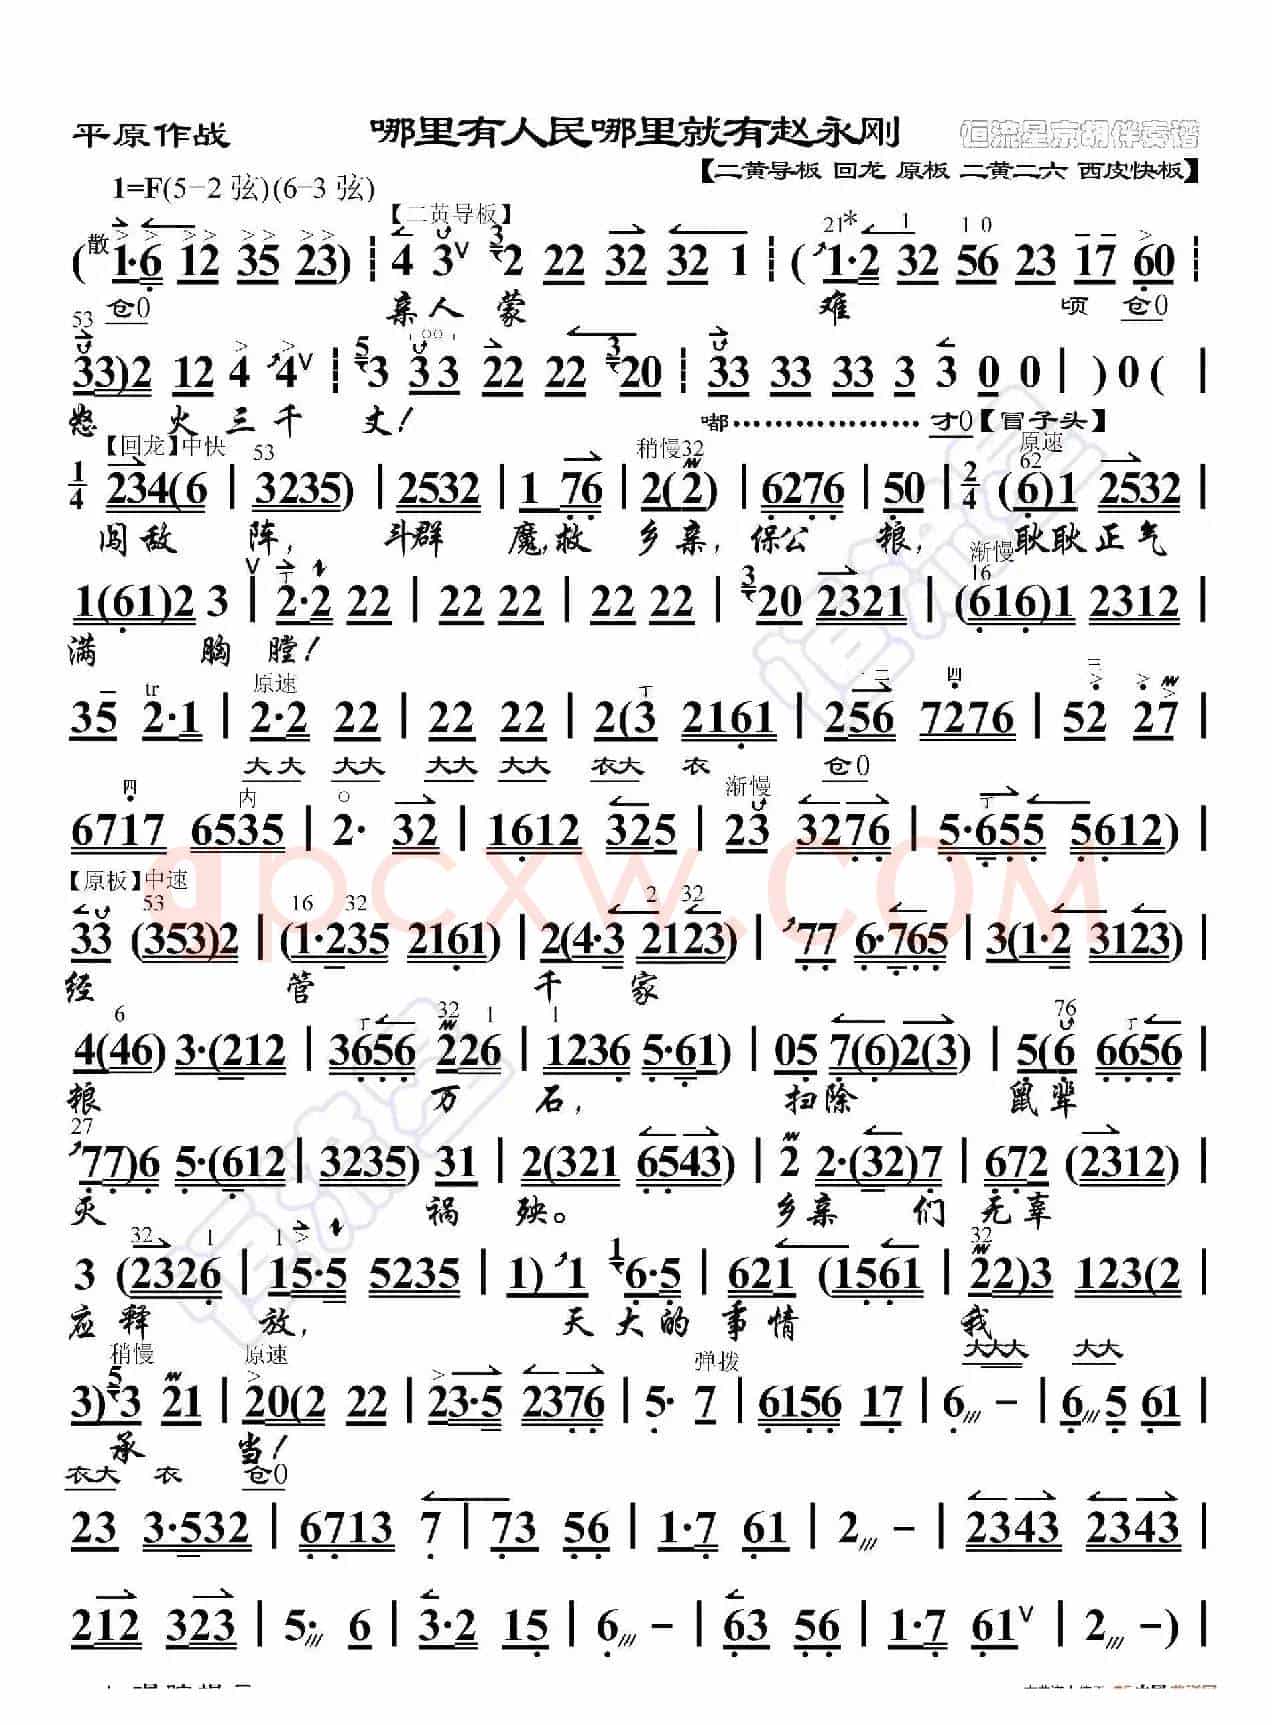 平原作战 哪里有人民哪里就有赵永刚 恒流星京胡伴奏谱
【二黄导板 回龙 原板 二黄二六 西皮快板】
1=F(5-2 弦)(6-3 弦)
【二黄导板】 21* 1 1 0
散 (1·6 12 35 23) ┋ 4 3 ∨ 3 2 22 32 32 1 ┋ (1·2 32 56 23 17 60 ┋
仓0 亲人 蒙 难 顷 仓0
53
33)2 12 4 4 ∨ ┋ 5 3 33 22 22 3 20 ┋ 33 33 33 3 3 0 0 | ) 0 ( |
怒 火 三 千 丈! 嘟……………… 才0【冒子头】
【回龙】中快 53 稍慢32 原速 62
1/4 234(6 | 3235) | 2532 | 1 76 | 2(2) | 6276 | 50 | 2/4 (6)1 2532 |
闯敌 阵, 斗群 魔,救 乡亲, 保公 粮, 耿耿正气
渐慢 16
1(61)2 3 | 2·2 22 | 22 22 | 22 22 | 3 20 2321 | (616)1 2312 |
满 胸 膛!
tr 原速 丁 一二 四 三
35 2·1 | 2·2 22 | 22 22 | 2(3 2161 | 256 7276 | 52 27 |
大大 大大 大大 大大 衣大 衣 仓0
四 内 ○ 渐慢 丁
6717 6535 | 2· 32 | 1612 325 | 23 3276 | 5·655 5612) |
【原板】中速
53 16 32 2 32
33 (353)2 | (1·235 2161) | 2(4·3 2123) | 77 6·765 | 3(1·2 3123) |
经 管 千 家
6 丁 32 1 1 76 丁
4(46) 3·(212 | 3656 226 | 1236 5·61) | 05 7(6)2(3) | 5(6 6656 |
粮 万 石, 扫除 鼠辈
27
77)6 5·(612 | 3235) 31 | 2(321 6543) | 2 2·(32)7 | 672 (2312) |
灭 祸 殃。 乡亲 们 无辜
32 1 1 1 32
3 (2326 | 15·5 5235 | 1) 1 6·5 | 621 (1561 | 22)3 123(2 |
应释 放, 天大的 事情 我
大大大 大大
稍慢 原速 弹拨
3) 5 3 21 | 20(2 22 | 23·5 2376 | 5· 7 | 6156 17 | 6 - | 6· 5 61 |
承 当!
衣大 衣 仓0
23 3·532 | 6713 7 | 73 56 | 1·7 61 | 2 - | 2343 2343 |
212 323 | 5· 6 | 3·2 15 | 6· 63 56 | 1·7 61 ∨ | 2 -) |
apcxw.com
恒流星
恒流星